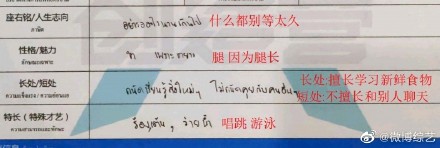 座右铭/人生志向
อย่ารออะไรนานเกินไป 什么都别等太久
คติพจน์
性格/魅力
ขา เพราะ ขายาว 腿 因为腿长
长处/短处
ถนัดเรียนรู้สิ่งใหม่ๆ ไม่ถนัดคุยกับคนอื่น
长处:擅长学习新鲜食物
短处:不擅长和别人聊天
特长（特殊才艺）
ร้องเต้น, ว่ายน้ำ 唱跳 游泳
@微博综艺